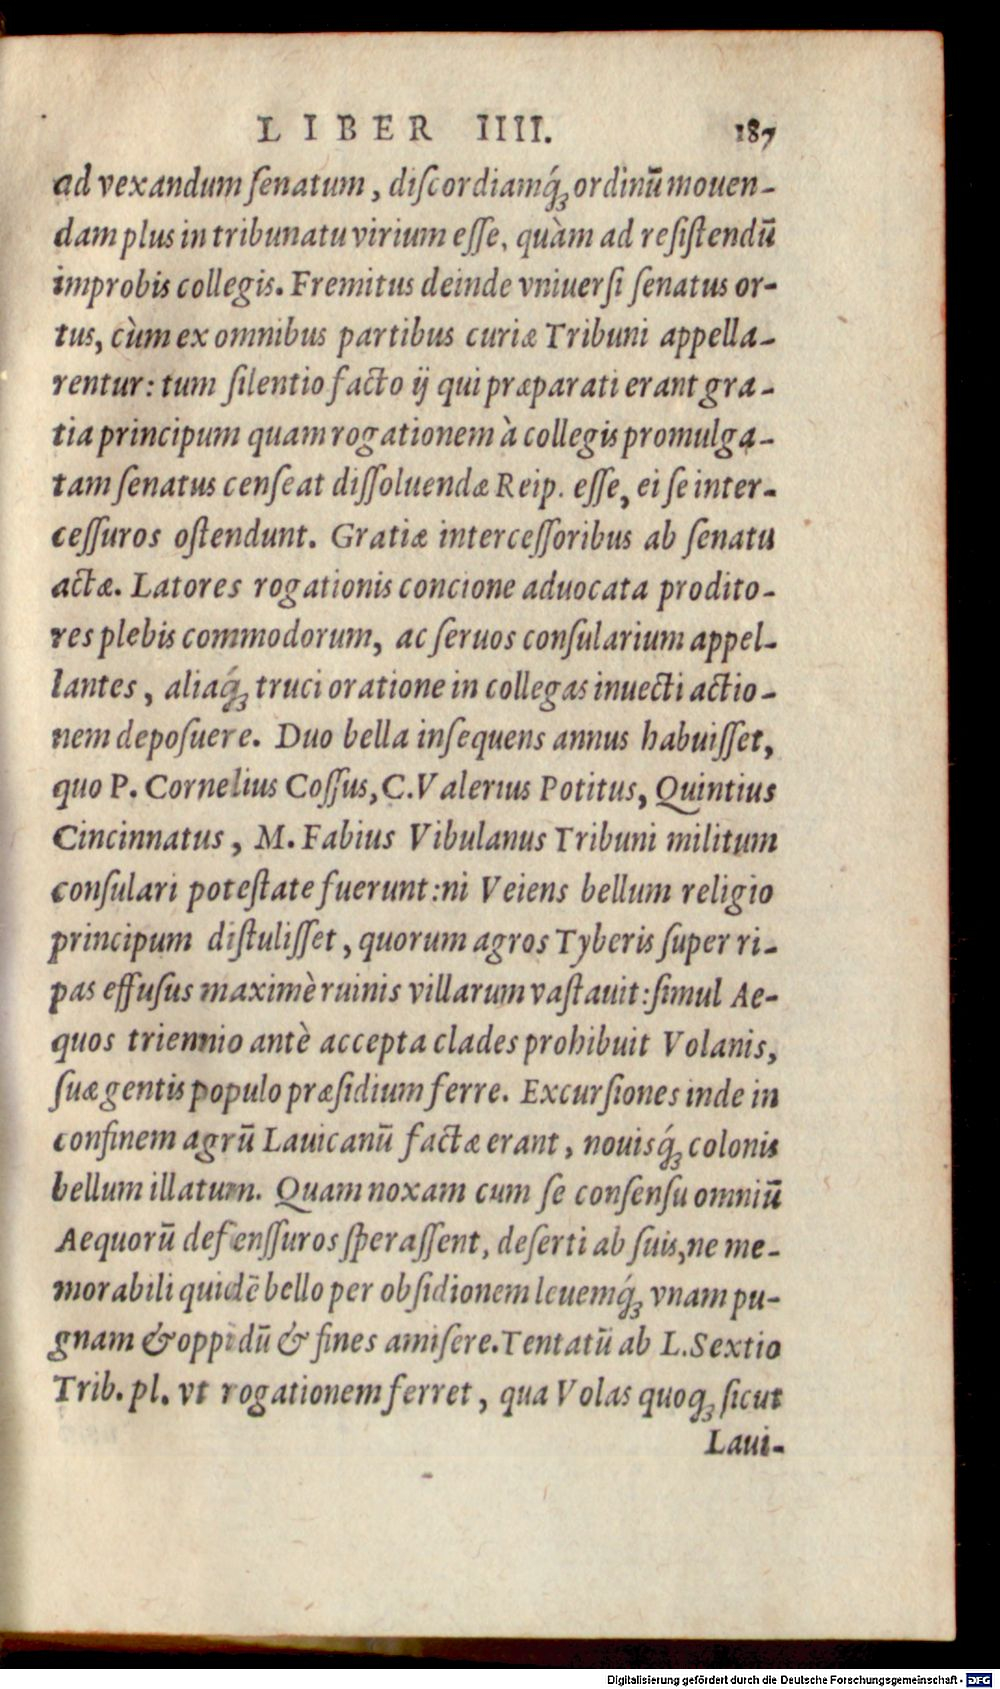 LIBER IIII. 187
ad vexandum ſenatum, diſcordiamq́ꝫ ordinū mouen-
dam plus in tribunatu virium eſſe, quàm ad reſiſtendū
improbis collegis. Fremitus deinde vniuerſi ſenatus or-
tus, cùm ex omnibus partibus curiæ Tribuni appella-
rentur: tum ſilentio facto ij qui præparati erant gra-
tia principum quam rogationem à collegis promulga-
tam ſenatus cenſeat diſſoluendæ Reip. eſſe, ei ſe inter-
ceſſuros oſtendunt. Gratiæ interceſſoribus ab ſenatu
actæ. Latores rogationis concione aduocata prodito-
res plebis commodorum, ac ſeruos conſularium appel-
lantes, aliaq́ꝫ truci oratione in collegas inuecti actio-
nem depoſuere. Duo bella inſequens annus habuiſſet,
quo P. Cornelius Coſſus, C. Valerius Potitus, Quintius
Cincinnatus, M. Fabius Vibulanus Tribuni militum
conſulari poteſtate fuerunt: ni Veiens bellum religio
principum diſtuliſſet, quorum agros Tyberis ſuper ri-
pas effuſus maximè ruinis villarum vaſtauit: ſimul Ae-
quos triennio antè accepta clades prohibuit Volanis,
ſuæ gentis populo præſidium ferre. Excurſiones inde in
confinem agrū Lauicanū factæ erant, nouisq́ꝫ colonis
bellum illatum. Quam noxam cum ſe conſenſu omniū
Aequorū defenſſuros ſperaſſent, deſerti ab ſuis, ne me-
morabili quidē bello per obſidionem leuemq́ꝫ vnam pu-
gnam & oppidū & fines amiſere. Tentatū ab L. Sextio
Trib. pl. vt rogationem ferret, qua Volas quoqꝫ ſicut
Laui-
Digitalisierung gefördert durch die Deutsche Forschungsgemeinschaft - DFG